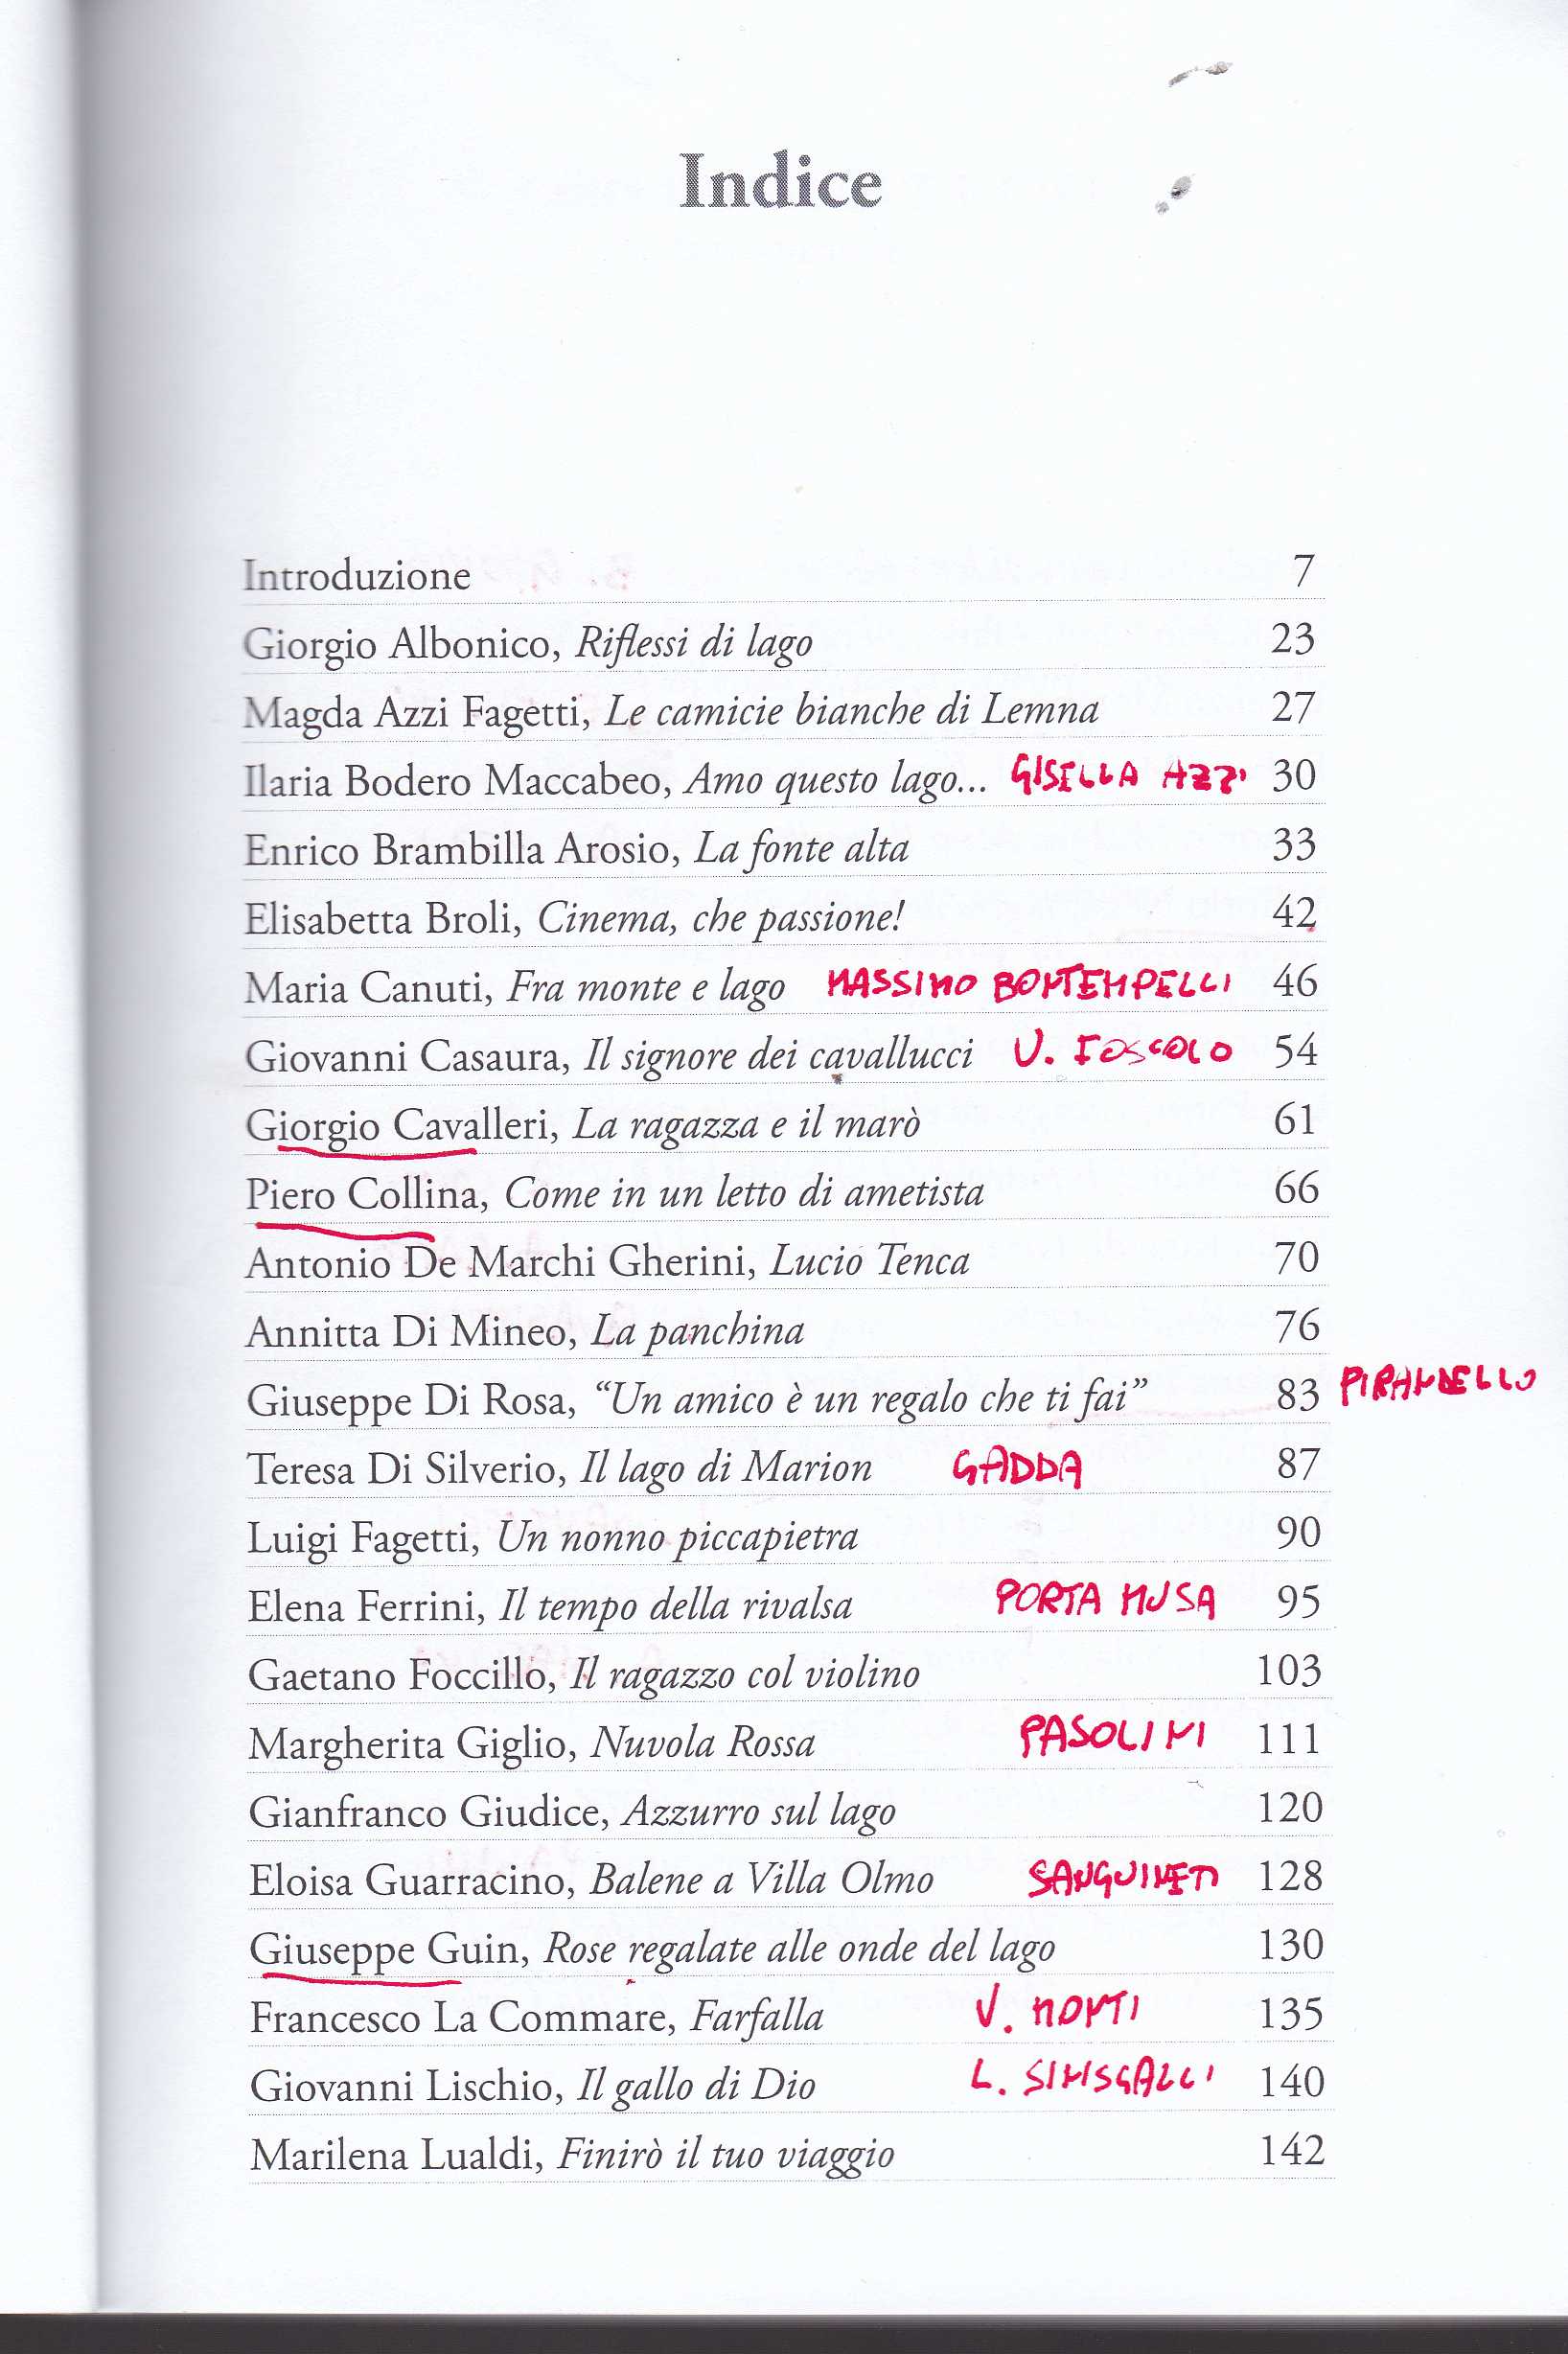 Indice
Introduzione 7
Giorgio Albonico, Riflessi di lago 23
Magda Azzi Fagetti, Le camicie bianche di Lemna 27
Ilaria Bodero Maccabeo, Amo questo lago... GISELLA AZZI 30
Enrico Brambilla Arosio, La fonte alta 33
Elisabetta Broli, Cinema, che passione! 42
Maria Canuti, Fra monte e lago MASSIMO BONTEMPELLI 46
Giovanni Casaura, Il signore dei cavallucci U. FOSCOLO 54
Giorgio Cavalleri, La ragazza e il marò 61
Piero Collina, Come in un letto di ametista 66
Antonio De Marchi Gherini, Lucio Tenca 70
Annitta Di Mineo, La panchina 76
Giuseppe Di Rosa, “Un amico è un regalo che ti fai” 83 PIRANDELLO
Teresa Di Silverio, Il lago di Marion GADDA 87
Luigi Fagetti, Un nonno piccapietra 90
Elena Ferrini, Il tempo della rivalsa PORTA MUSA 95
Gaetano Foccillo, Il ragazzo col violino 103
Margherita Giglio, Nuvola Rossa PASOLINI 111
Gianfranco Giudice, Azzurro sul lago 120
Eloisa Guarracino, Balene a Villa Olmo SANGUINETI 128
Giuseppe Guin, Rose regalate alle onde del lago 130
Francesco La Commare, Farfalla V. MONTI 135
Giovanni Lischio, Il gallo di Dio L. SINISGALLI 140
Marilena Lualdi, Finirò il tuo viaggio 142